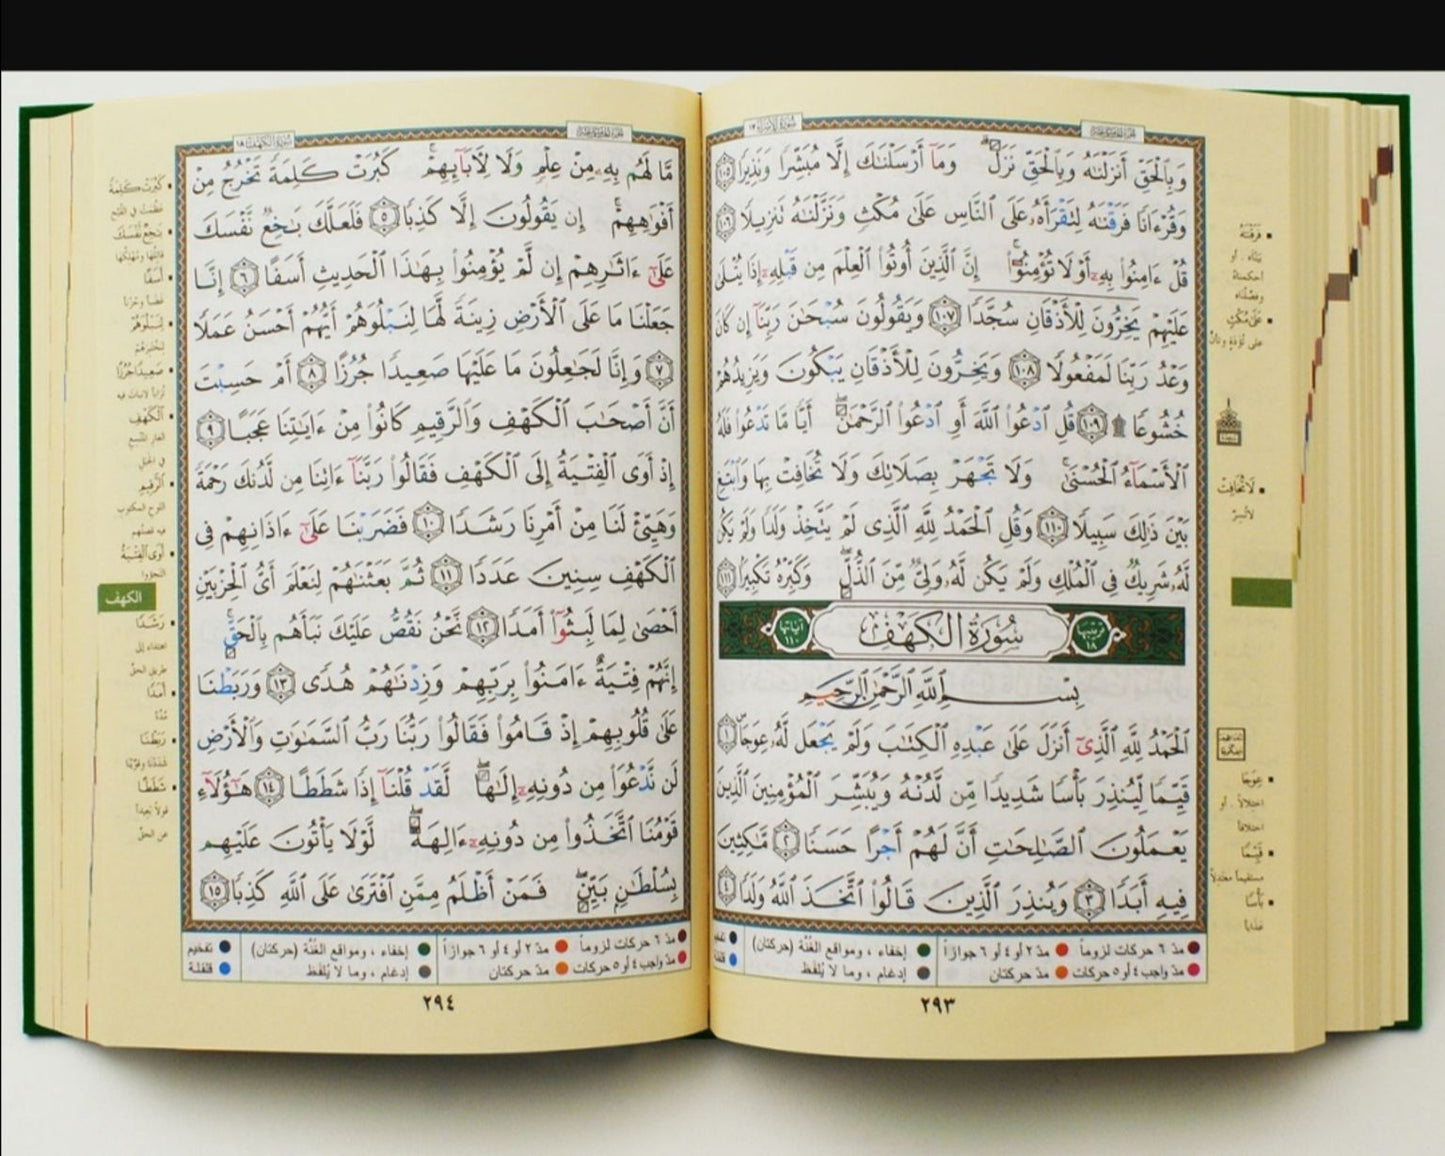 سورة الإسراء ١٧
وَبِالْحَقِّ أَنزَلْنَٰهُ وَبِالْحَقِّ نَزَلَ ۗ وَمَآ أَرْسَلْنَٰكَ إِلَّا مُبَشِّرًا وَنَذِيرًا ١٠٥
وَقُرْءَانًا فَرَقْنَٰهُ لِتَقْرَأَهُۥ عَلَى النَّاسِ عَلَىٰ مُكْثٍ وَنَزَّلْنَٰهُ تَنزِيلًا ١٠٦
قُلْ ءَامِنُوا۟ بِهِۦٓ أَوْ لَا تُؤْمِنُوٓا۟ ۚ إِنَّ الَّذِينَ أُوتُوا۟ الْعِلْمَ مِن قَبْلِهِۦٓ إِذَا يُتْلَىٰ
عَلَيْهِمْ يَخِرُّونَ لِلْأَذْقَانِ سُجَّدًا ١٠٧ وَيَقُولُونَ سُبْحَٰنَ رَبِّنَآ إِن كَانَ
وَعْدُ رَبِّنَا لَمَفْعُولًا ١٠٨ وَيَخِرُّونَ لِلْأَذْقَانِ يَبْكُونَ وَيَزِيدُهُمْ
خُشُوعًا ۩ ١٠٩ قُلِ ادْعُوا۟ اللَّهَ أَوِ ادْعُوا۟ الرَّحْمَٰنَ ۖ أَيًّا مَّا تَدْعُوا۟ فَلَهُ
الْأَسْمَآءُ الْحُسْنَىٰ ۚ وَلَا تَجْهَرْ بِصَلَاتِكَ وَلَا تُخَافِتْ بِهَا وَابْتَغِ
بَيْنَ ذَٰلِكَ سَبِيلًا ١١٠ وَقُلِ الْحَمْدُ لِلَّهِ الَّذِى لَمْ يَتَّخِذْ وَلَدًا وَلَمْ يَكُن
لَّهُۥ شَرِيكٌ فِى الْمُلْكِ وَلَمْ يَكُن لَّهُۥ وَلِىٌّ مِّنَ الذُّلِّ ۖ وَكَبِّرْهُ تَكْبِيرًا ١١١
ترتيبها ١٨ سُورَةُ الْكَهْفِ آياتها ١١٠
بِسْمِ اللَّهِ الرَّحْمَٰنِ الرَّحِيمِ
الْحَمْدُ لِلَّهِ الَّذِىٓ أَنزَلَ عَلَىٰ عَبْدِهِ الْكِتَٰبَ وَلَمْ يَجْعَل لَّهُۥ عِوَجَا ۜ ١
قَيِّمًا لِّيُنذِرَ بَأْسًا شَدِيدًا مِّن لَّدُنْهُ وَيُبَشِّرَ الْمُؤْمِنِينَ الَّذِينَ
يَعْمَلُونَ الصَّٰلِحَٰتِ أَنَّ لَهُمْ أَجْرًا حَسَنًا ٢ مَّٰكِثِينَ
فِيهِ أَبَدًا ٣ وَيُنذِرَ الَّذِينَ قَالُوا۟ اتَّخَذَ اللَّهُ وَلَدًا ٤
فَرَقْنَٰهُ
بيّنّاه . أو
أحكمناه
وفصّلناه
عَلَىٰ مُكْثٍ
على تُؤَدَةٍ وتأنٍّ
لَا تُخَافِتْ
لا تُسِرّ
عِوَجًا
اختلالاً . أو
اختلافاً
قَيِّمًا
مستقيماً معتدلاً
بَأْسًا
عذاباً
مدّ ٦ حركات لزوماً مدّ ٢ أو ٤ أو ٦ جوازاً إخفاء ، ومواقع الغُنَّة (حركتان)
مدّ واجب ٤ أو ٥ حركات مدّ حركتان إدغام ، وما لا يُلفَظ
٢٩٣
سورة الكهف ١٨
مَّا لَهُم بِهِۦ مِنْ عِلْمٍ وَلَا لِءَابَآئِهِمْ ۚ كَبُرَتْ كَلِمَةً تَخْرُجُ مِنْ
أَفْوَٰهِهِمْ ۚ إِن يَقُولُونَ إِلَّا كَذِبًا ٥ فَلَعَلَّكَ بَٰخِعٌ نَّفْسَكَ
عَلَىٰٓ ءَاثَٰرِهِمْ إِن لَّمْ يُؤْمِنُوا۟ بِهَٰذَا الْحَدِيثِ أَسَفًا ٦ إِنَّا
جَعَلْنَا مَا عَلَى الْأَرْضِ زِينَةً لَّهَا لِنَبْلُوَهُمْ أَيُّهُمْ أَحْسَنُ عَمَلًا
٧ وَإِنَّا لَجَٰعِلُونَ مَا عَلَيْهَا صَعِيدًا جُرُزًا ٨ أَمْ حَسِبْتَ
أَنَّ أَصْحَٰبَ الْكَهْفِ وَالرَّقِيمِ كَانُوا۟ مِنْ ءَايَٰتِنَا عَجَبًا ٩
إِذْ أَوَى الْفِتْيَةُ إِلَى الْكَهْفِ فَقَالُوا۟ رَبَّنَآ ءَاتِنَا مِن لَّدُنكَ رَحْمَةً
وَهَيِّئْ لَنَا مِنْ أَمْرِنَا رَشَدًا ١٠ فَضَرَبْنَا عَلَىٰٓ ءَاذَانِهِمْ فِى
الْكَهْفِ سِنِينَ عَدَدًا ١١ ثُمَّ بَعَثْنَٰهُمْ لِنَعْلَمَ أَىُّ الْحِزْبَيْنِ
أَحْصَىٰ لِمَا لَبِثُوٓا۟ أَمَدًا ١٢ نَّحْنُ نَقُصُّ عَلَيْكَ نَبَأَهُم بِالْحَقِّ ۚ
إِنَّهُمْ فِتْيَةٌ ءَامَنُوا۟ بِرَبِّهِمْ وَزِدْنَٰهُمْ هُدًى ١٣ وَرَبَطْنَا
عَلَىٰ قُلُوبِهِمْ إِذْ قَامُوا۟ فَقَالُوا۟ رَبُّنَا رَبُّ السَّمَٰوَٰتِ وَالْأَرْضِ
لَن نَّدْعُوَا۟ مِن دُونِهِۦٓ إِلَٰهًا ۖ لَّقَدْ قُلْنَآ إِذًا شَطَطًا ١٤ هَٰٓؤُلَآءِ
قَوْمُنَا اتَّخَذُوا۟ مِن دُونِهِۦٓ ءَالِهَةً ۖ لَّوْلَا يَأْتُونَ عَلَيْهِم
بِسُلْطَٰنٍۭ بَيِّنٍ ۖ فَمَنْ أَظْلَمُ مِمَّنِ افْتَرَىٰ عَلَى اللَّهِ كَذِبًا ١٥
كَبُرَتْ كَلِمَةً
عظمت في القبح
بَٰخِعٌ نَّفْسَكَ
قاتلها ومهلكها
أَسَفًا
غضباً وحزناً
لِنَبْلُوَهُمْ
لنختبرهم
صَعِيدًا جُرُزًا
تراباً لا نبات فيه
الْكَهْفِ
الغار المتّسع
في الجبل
الرَّقِيمِ
اللوح المكتوب
فيه قصتهم
أَوَى الْفِتْيَةُ
التجؤوا
الكهف
رَشَدًا
اهتداء إلى
طريق الحقّ
أَمَدًا
مدّة
رَبَطْنَا
شددنا وقوّينا
شَطَطًا
قولاً بعيداً
عن الحقّ
مدّ ٦ حركات لزوماً مدّ ٢ أو ٤ أو ٦ جوازاً إخفاء ، ومواقع الغُنَّة (حركتان) تفخيم
مدّ واجب ٤ أو ٥ حركات مدّ حركتان إدغام ، وما لا يُلفَظ قلقلة
٢٩٤